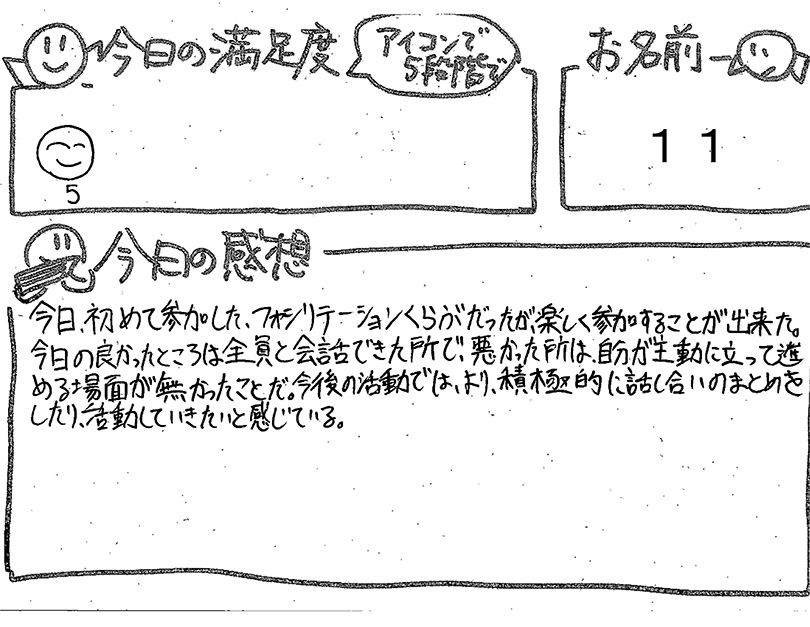 今日の満足度
アイコンで
5段階で
お名前
11
5
今日の感想
今日、初めて参加した、ファシリテーションくらぶだったが、楽しく参加することが出来た。
今日の良かったところは全員と会話できた所で、悪かった所は、自分が主動に立って進
める場面が無かったことだ。今後の活動では、より、積極的に話し合いのまとめを
したり、活動していきたいと感じている。